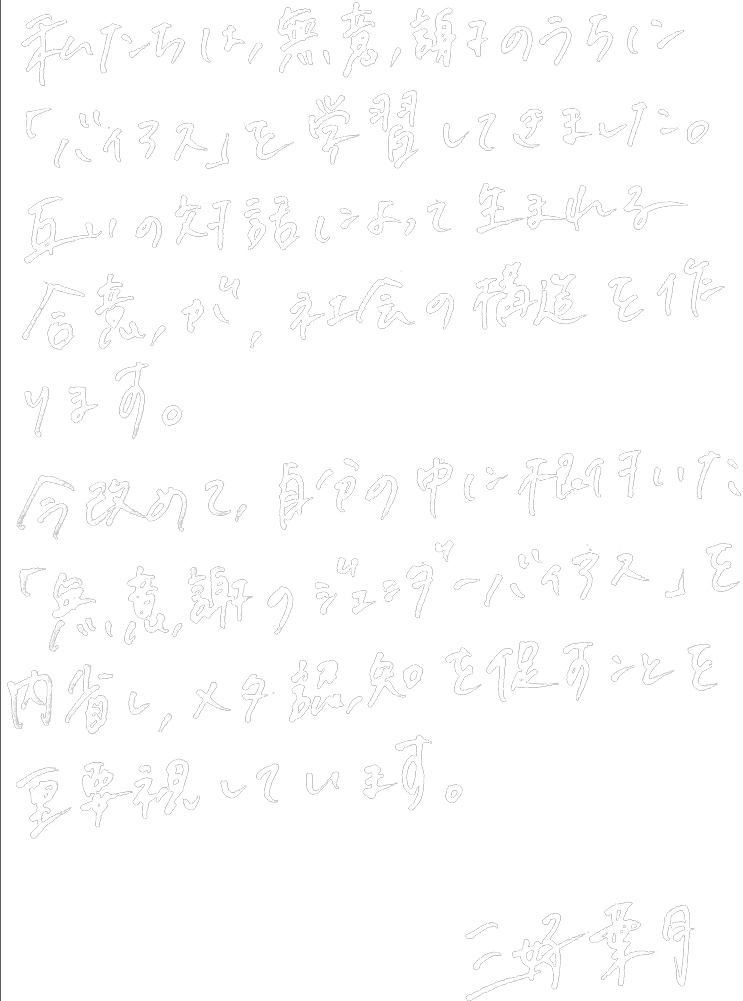 私たちは,無意識のうちに
「バイアス」を学習してきました。
互いの対話によって生まれる
合意が,社会の構造を作
ります。
今改めて,自分の中に根付いた
「無意識のジェンダーバイアス」を
内省し,メタ認知を促すことを
重要視しています。
三好葉月